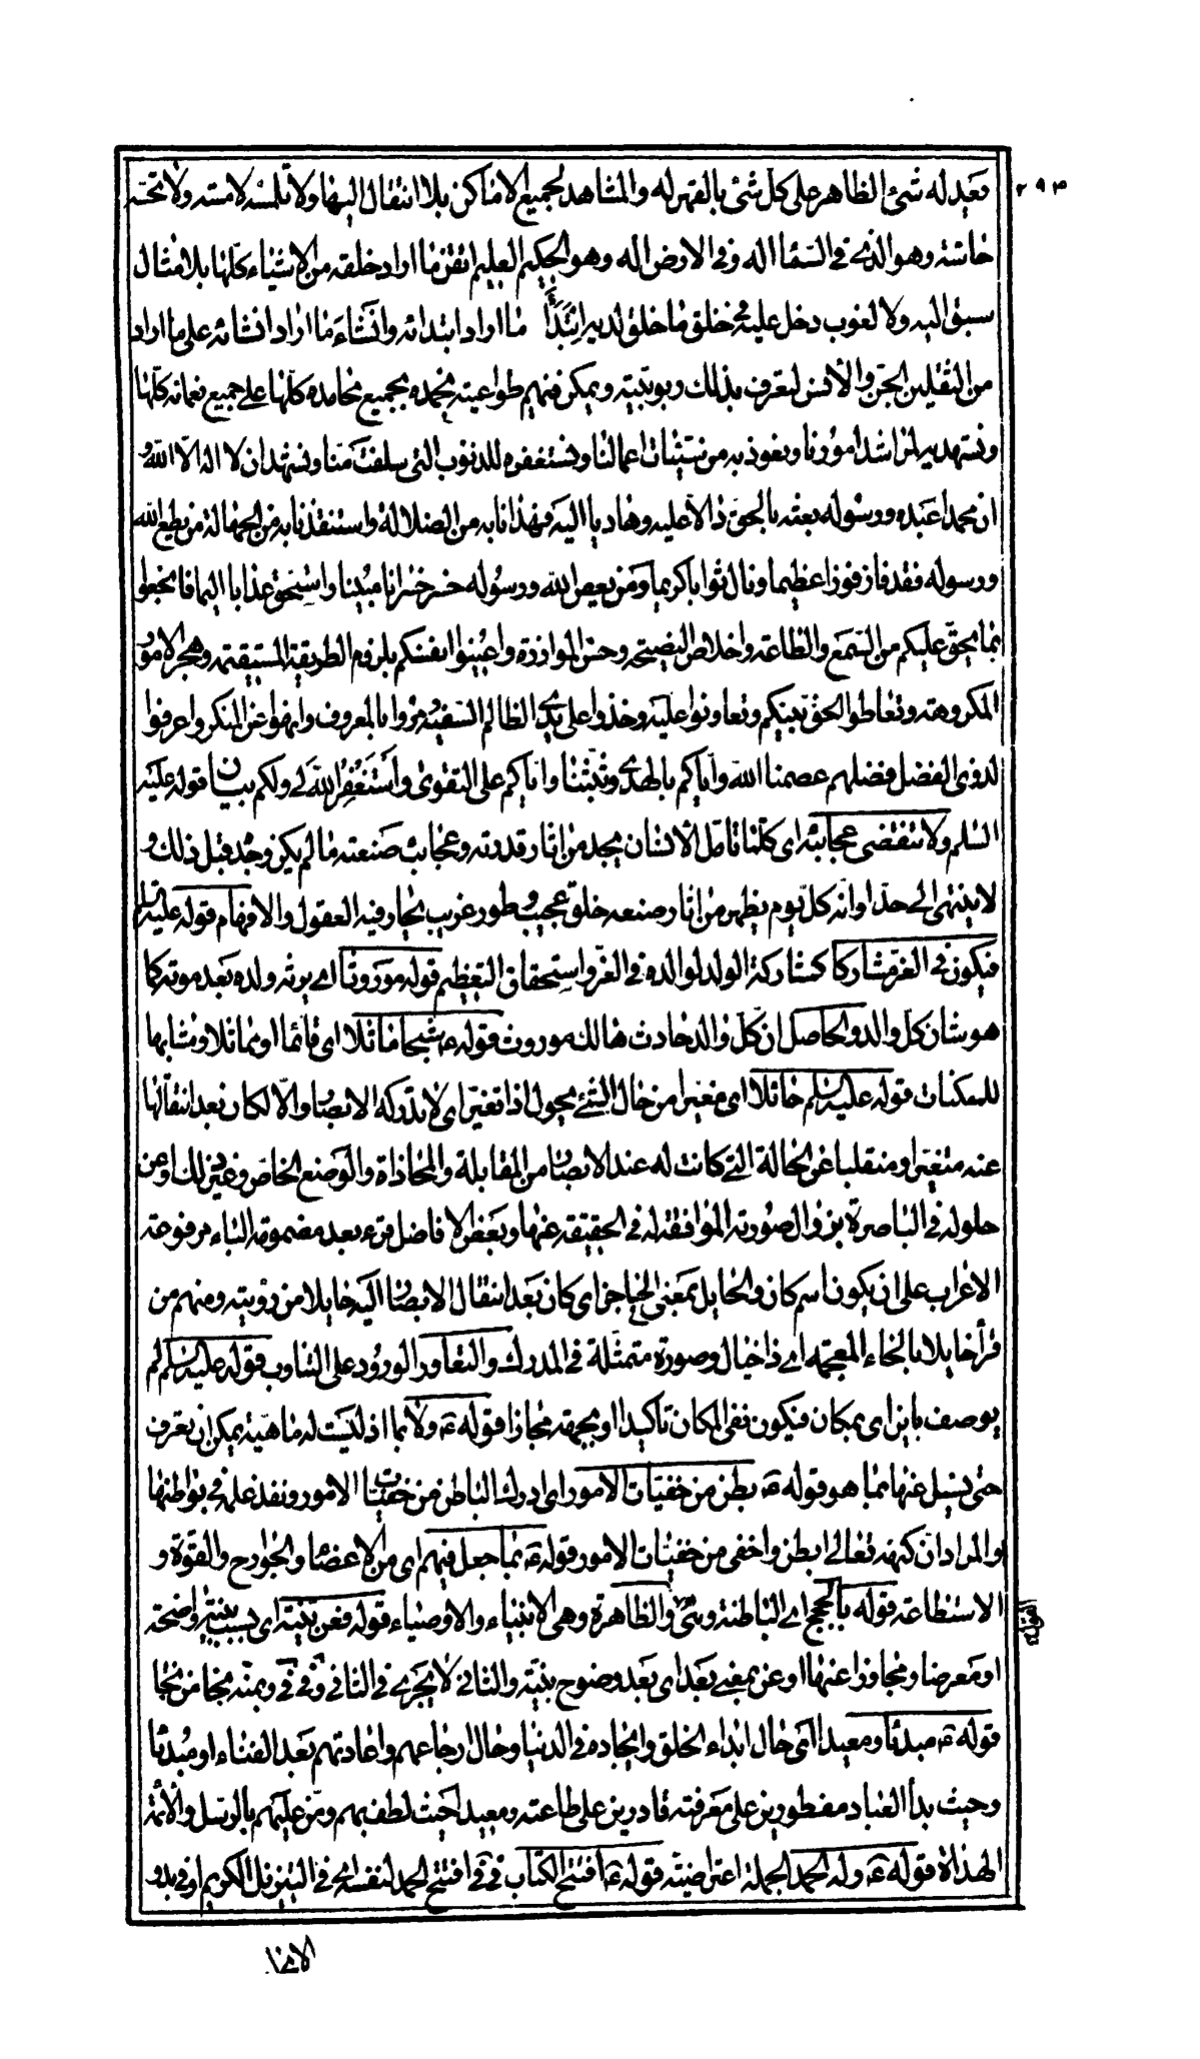 ٢٩٣
يعدله شئ الظاهر على كل شئ بالقهر له والمشاهد لجميع الاماكن بلا انتقال اليها ولا تلمسه لامسة ولا تحسّه
حاسّة وهو الذي في السّماء اله وفي الارض اله وهو الحكيم العليم اتقن ما اراد خلقه من الاشياء كلّها بلا مثال
سبق اليه ولا لغوب دخل عليه في خلق ما خلق لديه ابتدأ ما اراد ابتدائه وانشاء ما اراد انشائه على ما اراد
من الثقلين الجن والأنس لتعرف بذلك ربوبيّته ويمكن فيهم طواعيته نحمده بجميع محامده كلّها على جميع نعمائه كلّها
ونستهديه لمراشد امورنا ونعوذ به من سيئات اعمالنا ونستغفره للذنوب التي سلفت منّا ونشهد ان لا اله الّا اللهُ
ان محمدا عبده ورسوله بعثه بالحقّ دالّا عليه وهاديا اليه فهدانا به من الضلالة واستنقذنا به من الجهالة من يطع الله
ورسوله فقد فاز فوزا عظيما ونال ثوابا كريما ومن يعص الله ورسوله خسر خسرانا مبينا واستحق عذابا اليما فانجعوا
بما يحقّ عليكم من السّمع والطاعة واخلاص النصيحة وحسن الموازرة واعينوا انفسكم بلزوم الطريقة المستقيمة وهجر الامور
المكروهة وتعاطوا الحقّ بينكم وتعاونوا عليه وخذوا على يدي الظالم السّفيه مروا بالمعروف وانهوا عن المنكر واعرفوا
لذوي الفضل فضلهم عصمنا الله وايّاكم بالهدى وثبّتنا وايّاكم على التقوى وأستغفرُ الله لي ولكم بيان قوله عليه
السّلم ولا تنقضي عجائبه اي كلّما تأمّل الأنسان يجد من اثار قدرته وعجايب صنعته ما لم يكن وجد قبل ذلك و
لا ينتهي الى حدّ او انّه كلّ يوم يظهر من اثار صنعه خلق عجيب وطور غريب يحار فيه العقول والافهام قوله عليه السلم
فيكون في العزّ مشاركا كمشاركة الولد لوالده في العزّ واستحقاق التعظيم قوله موروثا اي يرثه ولده بعد موته كما
هو شان كل والد والحاصل ان كلّ والد حادث هالك موروث قوله ع شبحا ماثلا اي قائما او مماثلا ومشابها
للممكنات قوله عليه السلم حائلا اي متغيّرا من حال الشّئ يحول اذا تغيّر اي لا تدركه الابصار والّا لكان بعد انتقالها
عنه متغيّرا ومنقلبا عن الحالة التي كانت له عند الابصار من المقابلة والمحاذاة والوضع الخاص وغير ذلك او عن
حلوله في الباصرة بزوال صورته الموافقة له في الحقيقة عنها وبعض الافاضل قرء بعد مضمومة الباء مرفوعة
الاعراب على ان يكون اسم كان والحايل بمعنى الحاجز اي كان بعد انتقال الابصار اليه حايلا من رؤيته ومنهم من
قرأ خايلا بالخاء المعجمة اي ذا خيال وصورة متمثّلة في المدرك والتعاور الورود على التناوب قوله عليه السلم لم
يوصف باين اي بمكان فيكون نفي المكان تاكيدا او بجهة مجازا قوله ع ولا بما اذ ليست له ماهيّة يمكن ان تعرف
حتى يسئل عنها بما هو قوله ع بطن من خفيّات الامور اي ادرك الباطن من خفيّات الامور ونفذ علمه في بواطنها
والمراد انّ كنهه تعالى ابطن واخفى من خفيّات الامور قوله ع بما جعل فيهم اي من الاعضاء والجوارح والقوة و
الاستطاعة قوله بالحجج اي الباطنة وهي والظاهرة وهي الانبياء والاوصياء قوله فعن بيّنة اي بسبب بينة واضحة
او معرضا ومجاوزا عنها او عن بمعنى بعد اي بعد وضوح بيّنة والثاني لا يجري في الثاني وفي ق وبمنّه نجا من نجا
قوله ع مبدئا ومعيدا اي حال ابداء الخلق وايجاده في الدنيا وحال ارجاعهم واعادتهم بعد الفناء او مبدئا
وحيث بدأ العباد مفطورين على معرفته قادرين على طاعته ومعيدا حيث لطف بهم ومنّ عليهم بالرسل والائمّة
الهداة قوله ع وله الحمد الجملة اعتراضيّة قوله ع افتتح الكتاب في ق افتتح الحمد لنفسه اي في التنزيل الكريم او في بدو